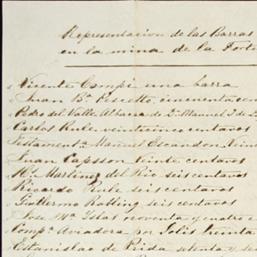 Representacion de las Barras
en la mina de la Fort
Vicente Campi una barra
Juan Bᵃ Pescetto, cincuenta cen
Pedro del Valle Albacea de Dⁿ Manuel J de
Carlos Rule veinticinco centavos
Testamentᵃ Manuel Escandon Vein
Juan Capsson veinte centavos
Mª Martinez del Rio seis centavos
Ricardo Rule seis centavos
Guillermo Robling seis centavos
Jose Mª noventa y cuatro c
Compᵃ Aviadora por
Estanislao de